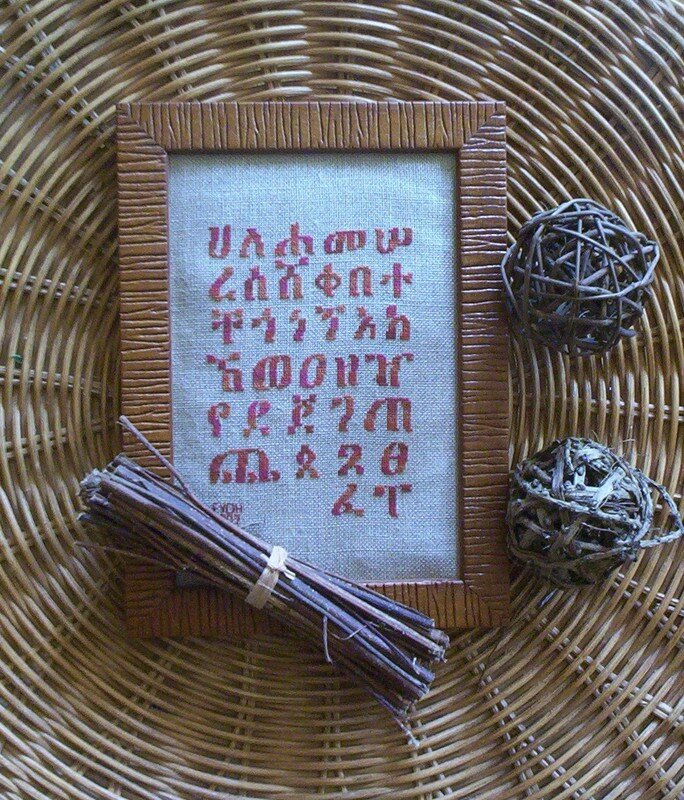 ሀ ለ ሐ መ ሠ
ረ ሰ ሸ ቀ በ ተ
ቸ ኀ ነ ኘ አ ከ
ኸ ወ ዐ ዘ ዠ
የ ደ ጀ ገ ጠ
ጨ ጰ ጸ ፀ
ፈ ፐ